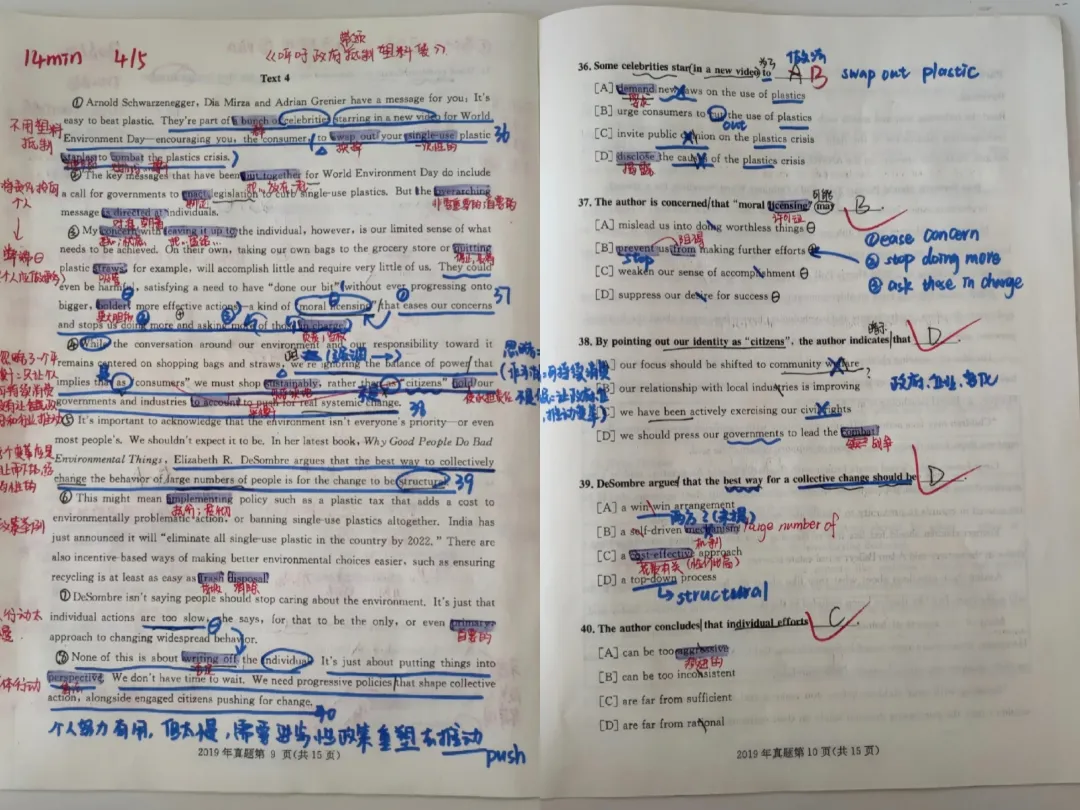 14min 4/5
Text 4
① Arnold Schwarzenegger, Dia Mirza and Adrian Grenier have a message for you: It's
easy to beat plastic. They're part of a bunch of celebrities starring in a new video for World
Environment Day—encouraging you, the consumer, to swap out your single-use plastic 36
staples to combat the plastics crisis.
② The key messages that have been put together for World Environment Day do include
a call for governments to enact legislation to curb single-use plastics. But the overarching
message is directed at individuals.
③ My concern with leaving it up to the individual, however, is our limited sense of what
needs to be achieved. On their own, taking our own bags to the grocery store or quitting
plastic straws, for example, will accomplish little and require very little of us. They could
even be harmful, satisfying a need to have "done our bit" without ever progressing onto
bigger, bolder, more effective actions—a kind of "moral licensing" that eases our concerns 37
and stops us doing more and asking more of those in charge.
④ While the conversation around our environment and our responsibility toward it
remains centered on shopping bags and straws, we're ignoring the balance of power that
implies that as "consumers" we must shop sustainably, rather than as "citizens" hold our
governments and industries to account to push for real systemic change. 38
⑤ It's important to acknowledge that the environment isn't everyone's priority—or even
most people's. We shouldn't expect it to be. In her latest book, Why Good People Do Bad
Environmental Things, Elizabeth R. DeSombre argues that the best way to collectively
change the behavior of large numbers of people is for the change to be structural. 39
⑥ This might mean implementing policy such as a plastic tax that adds a cost to
environmentally problematic action, or banning single-use plastics altogether. India has
just announced it will "eliminate all single-use plastic in the country by 2022." There are
also incentive-based ways of making better environmental choices easier, such as ensuring
recycling is at least as easy as trash disposal.
⑦ DeSombre isn't saying people should stop caring about the environment. It's just that
individual actions are too slow, she says, for that to be the only, or even primary,
approach to changing widespread behavior.
⑧ None of this is about writing off the individual. It's just about putting things into
perspective. We don't have time to wait. We need progressive policies that shape collective
action, alongside engaged citizens pushing for change.
40
个人努力有用，但太慢，需要进步性政策重塑去推动
push
2019 年真题第 9 页(共 15 页)
36. Some celebrities star in a new video to A B swap out plastic
[A] demand new laws on the use of plastics
[B] urge consumers to cut the use of plastics
out
[C] invite public opinion on the plastics crisis
[D] disclose the causes of the plastics crisis
37. The author is concerned that "moral licensing" may B
许可证
[A] mislead us into doing worthless things
① ease concern
[B] prevent us from making further efforts
阻碍
stop
② stop doing more
[C] weaken our sense of accomplishment
③ ask those in charge
[D] suppress our desire for success
38. By pointing out our identity as "citizens", the author indicates that D
[A] our focus should be shifted to community welfare
[B] our relationship with local industries is improving
[C] we have been actively exercising our civil rights
[D] we should push our governments to lead the combat
39. DeSombre argues that the best way for a collective change should be D
[A] a win-win arrangement
[B] a self-driven mechanism huge number of
机制
[C] a cost-effective approach
[D] a top-down process
structural
40. The author concludes that individual efforts C
[A] can be too aggressive
[B] can be too inconsistent
[C] are far from sufficient
[D] are far from rational
2019 年真题第 10 页(共 15 页)